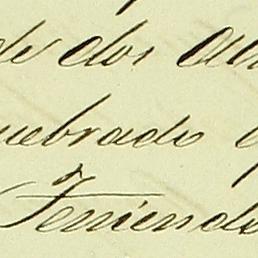 de dos
uebrado
Teniendo